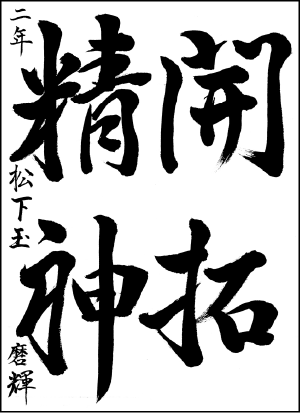 開拓
精神
二年 松下玉磨輝